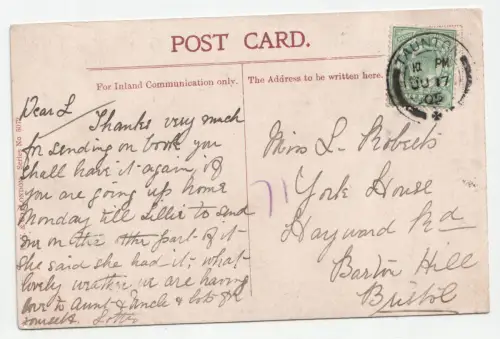 POST CARD.
For Inland Communication only.
The Address to be written here.
TAUNTON
PM
JU 17
05
Dear L
Thanks very much
for sending on book you
shall have it again, if
you are going up home
Monday tell Lillie to send
me on the other part of it
she said she had it, what
lovely weather we are having
love to Aunt & Uncle & lots for
yourself. Lottie
Miss L. Roberts
York House
Hayward Rd
Barton Hill
Bristol
71